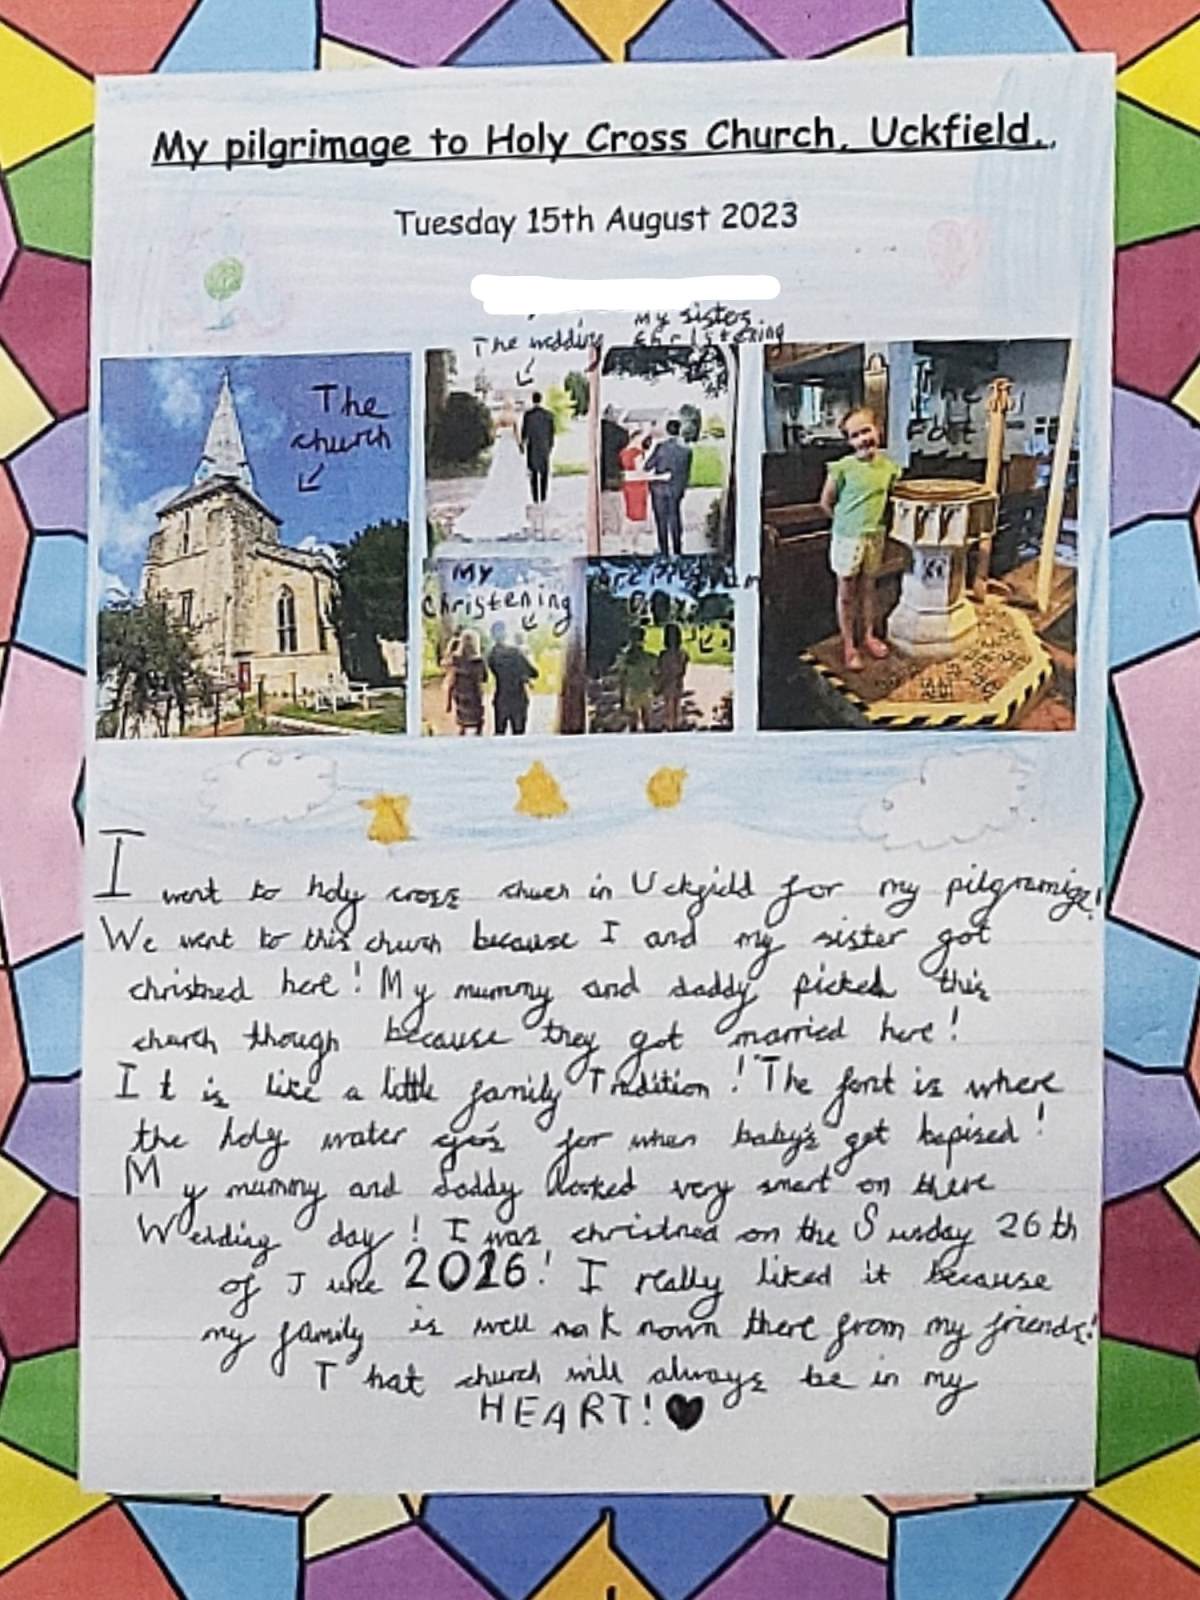 My pilgrimage to Holy Cross Church, Uckfield.
Tuesday 15th August 2023
My sister
The wedding christening
The
church
The
Font
My
christening
I went to holy cross church in Uckfield for my pilgramige!
We went to this church because I and my sister got
christned here! My mummy and daddy picked this
church though because they got married here!
It is like a little family Tradition! The font is where
the holy water goes for when baby's get bapised!
My mummy and daddy looked very smart on there
Wedding day! I was christned on the Sunday 26th
of June 2016! I really liked it because
my family is well nak nown there from my friends!
That church will always be in my
HEART!